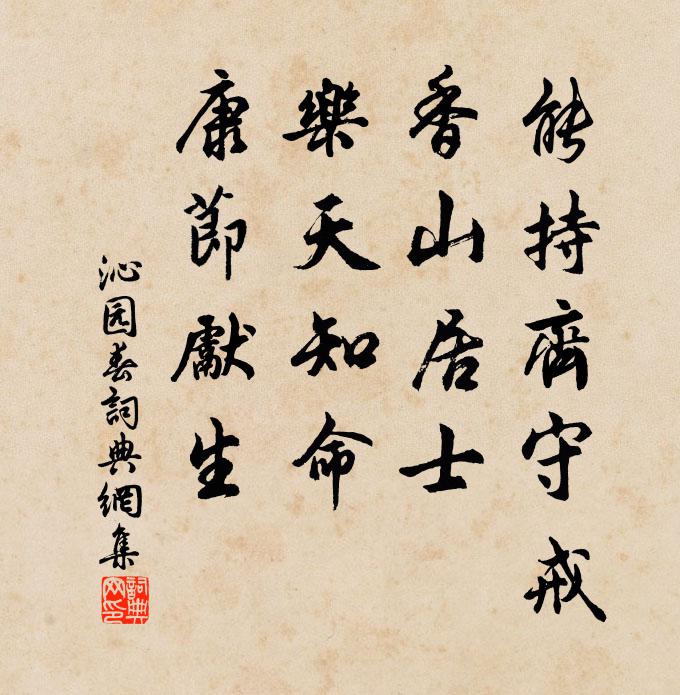 能持齊守戒
香山居士
樂天知命
康節獻生
沁园春詞典網集
詞典网印